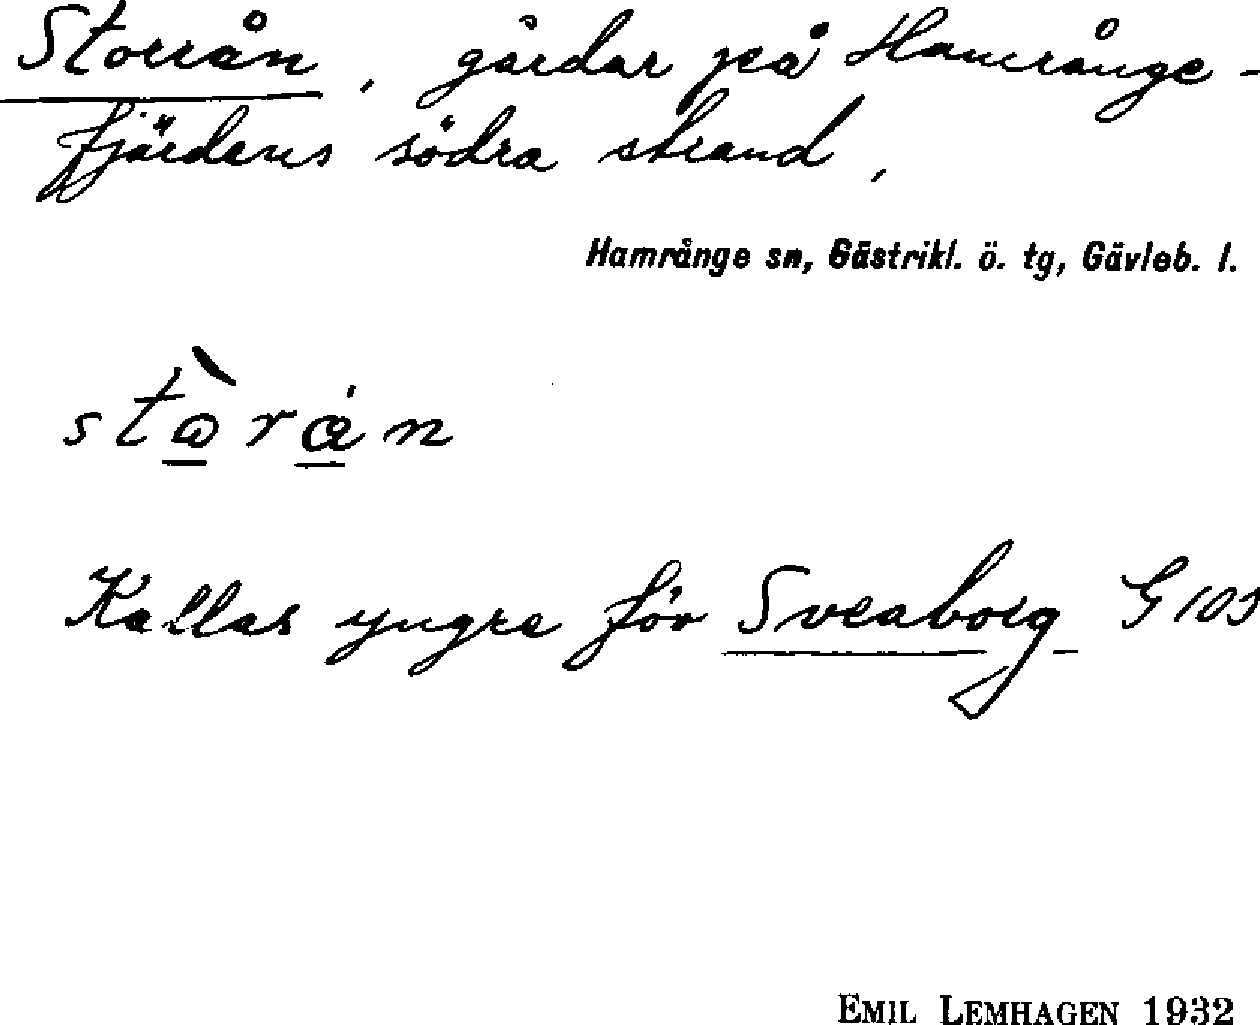 Storrån, gårdar på Hamrånge-
fjärdens södra strand,
Hamrånge sn, Gästrikl. ö. tg, Gävleb. l.
Kallas yngre för Sveaborg G 103
EMIL LEMHAGEN 1932